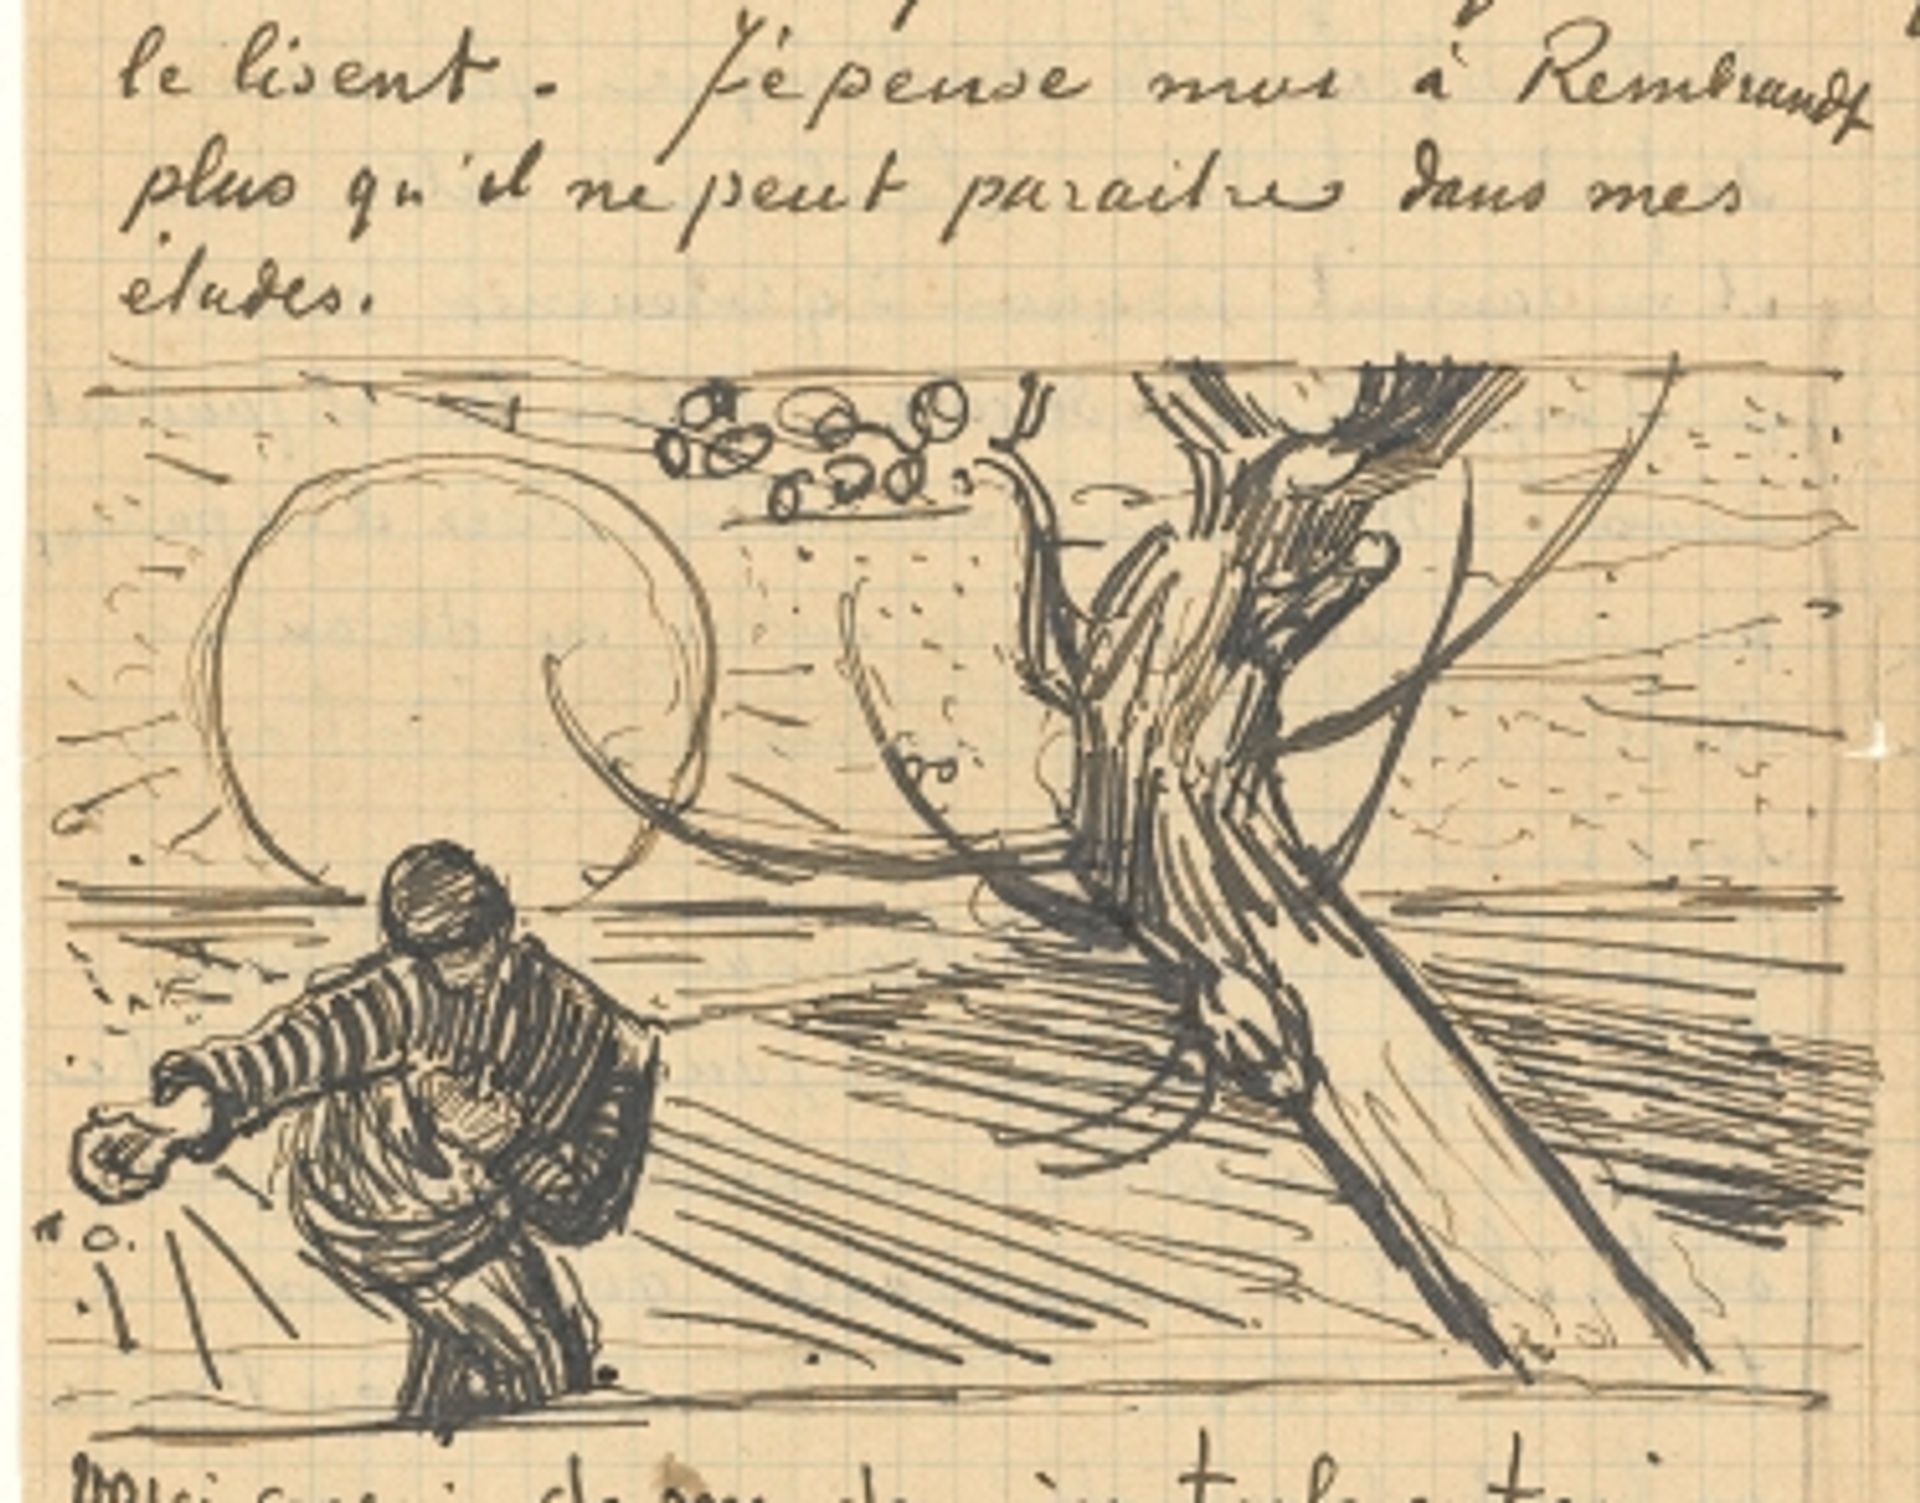 le lisent. J'y pense moi à Rembrandt
plus qu'il ne peut paraitre dans mes
études.